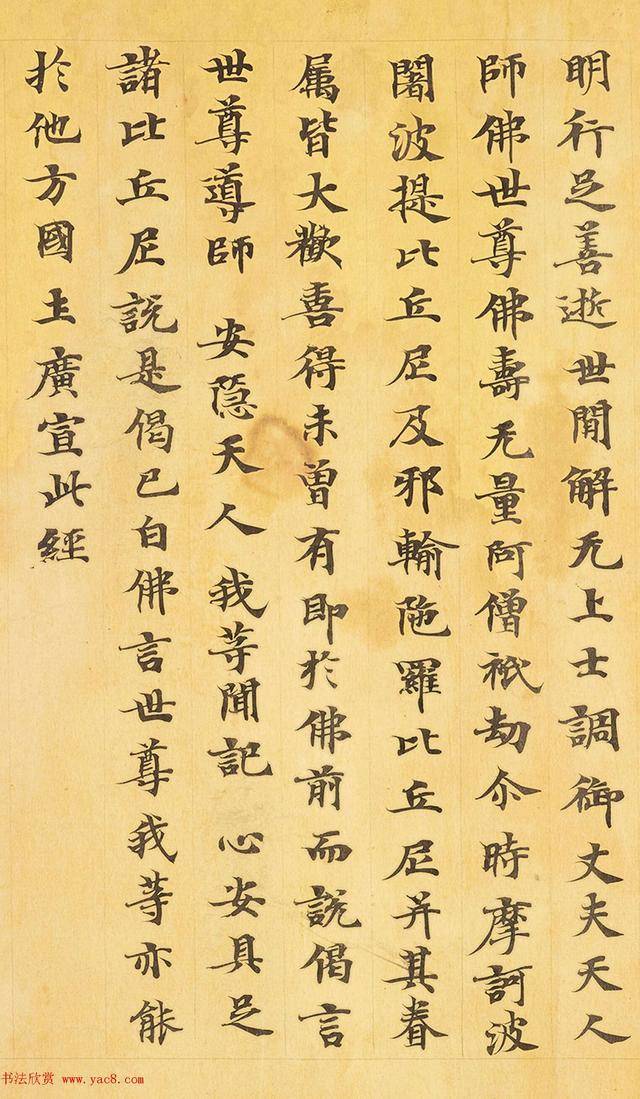 明行足善逝世間解无上士調御丈夫天人
師佛世尊佛壽无量阿僧祇劫尒時摩訶波
闍波提比丘尼及邪輸陁羅比丘尼并其眷
属皆大歡喜得未曾有即於佛前而說偈言
世尊導師 安隱天人 我等聞記 心安具足
諸比丘尼說是偈已白佛言世尊我等亦能
於他方國土廣宣此經
书法欣赏 www.yac8.com